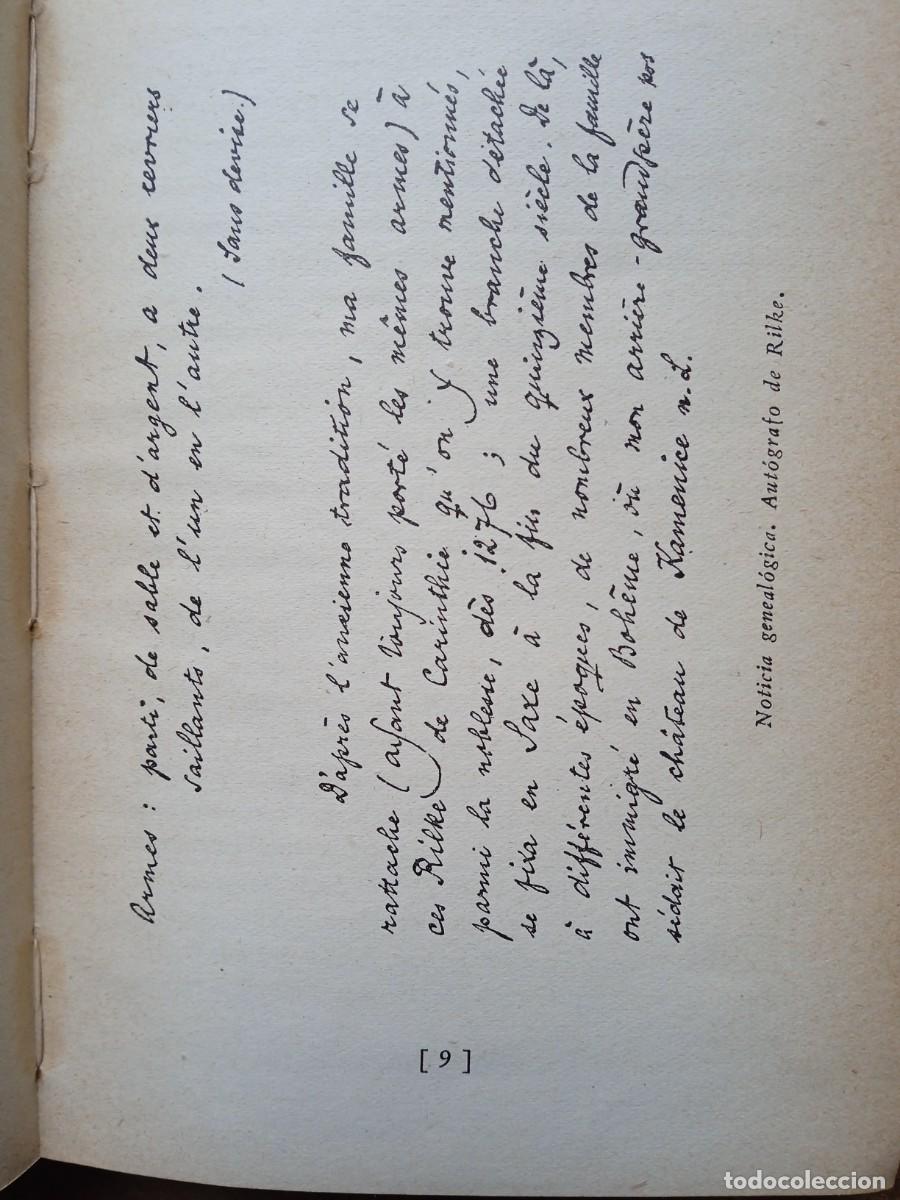 Armes : parti, de sable et d'argent, a deux levriers
saillants, de l'un en l'autre.
(Sans devise.)
D'après l'ancienne tradition, ma famille se
rattache (ayant toujours porté les mêmes armes) à
ces Rilke de Carinthie qu'on y trouve mentionnés,
parmi la noblesse, dès 1276 ; une branche détachée
se fixa en Saxe à la fin du quinzième siècle. De là,
à différentes époques, de nombreux membres de la famille
ont immigré en Bohême, où mon arrière-grandpère pos
sédait le château de Kamenice n.L.
Noticia genealógica. Autógrafo de Rilke.
[ 9 ]
todocoleccion